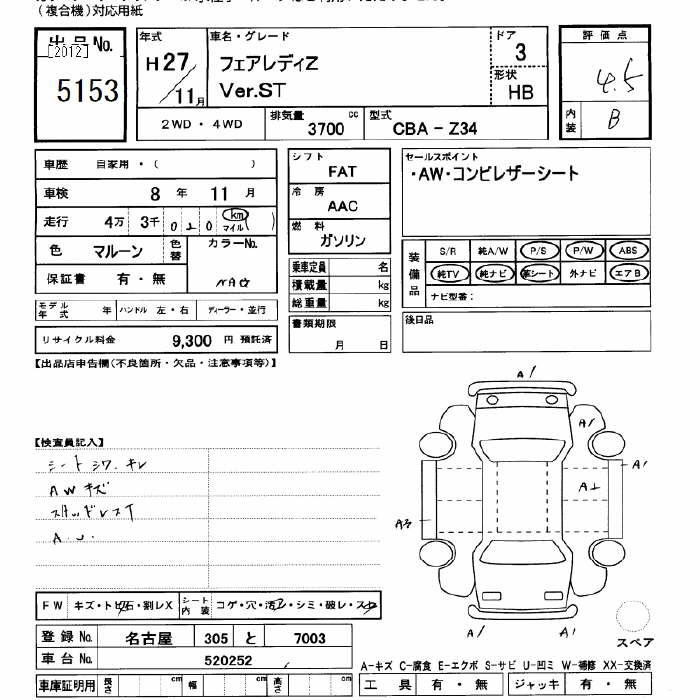 (複合機)対応用紙
出品No.
[2012]
5153
年式
H27/11月
車名・グレード
フェアレディZ
Ver.ST
ドア
3
形状
HB
評価点
4.5
内装
B
2WD・4WD
排気量
3700 cc
型式
CBA-Z34
車歴 自家用・( )
車検 8年 11月
走行 4万 3千 0 2 0 km マイル ( )
色 マルーン 色替 カラーNo.
NAG
保証書 有・無
モデル年式 年 ハンドル 左・右 ディーラー・並行
リサイクル料金 9,300 円 預託済
シフト
FAT
冷房
AAC
燃料
ガソリン
乗車定員 名
積載量 kg
総重量 kg
書類期限
月 日
セールスポイント
・AW・コンビレザーシート
装備品
S/R 純A/W P/S P/W ABS
純TV 純ナビ 革シート 外ナビ エアB
ナビ型番:
後日品
【出品店申告欄(不良箇所・欠品・注意事項等)】
【検査員記入】
シートシワ、キレ
AWキズ
スタッドレスT
A.U.
A1
A1
A1
A1
A3
A1
A1
スペア
FW キズ・トビ石・割レX シート内装 コゲ・穴・汚レ・シミ・破レ・スレ
登録No. 名古屋 305 と 7003
車台No. 520252
車庫証明用 長さ cm 幅 cm 高さ cm
A-キズ C-腐食 E-エクボ S-サビ U-凹ミ W-補修 XX-交換済
工具 有・無 ジャッキ 有・無